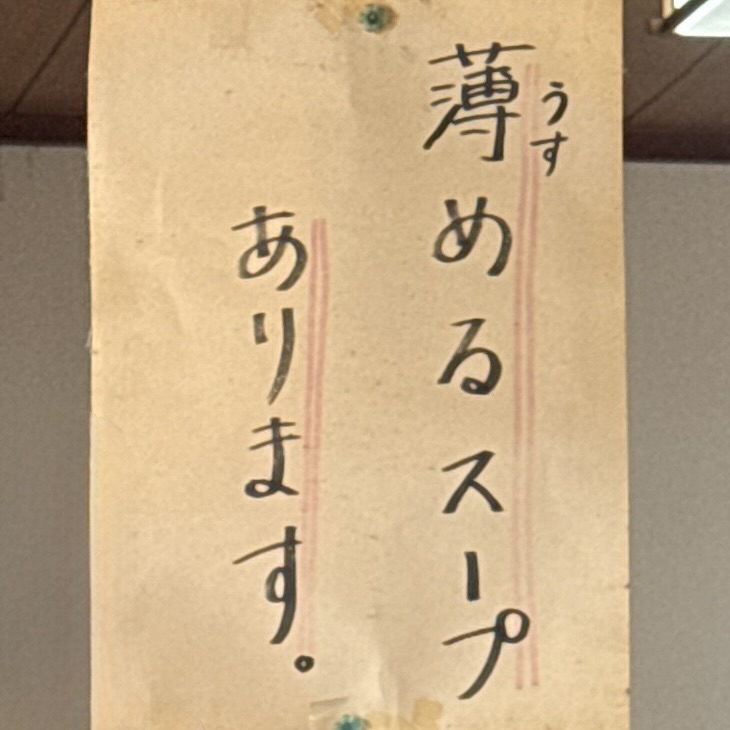 薄めるスープ
うす
あります。